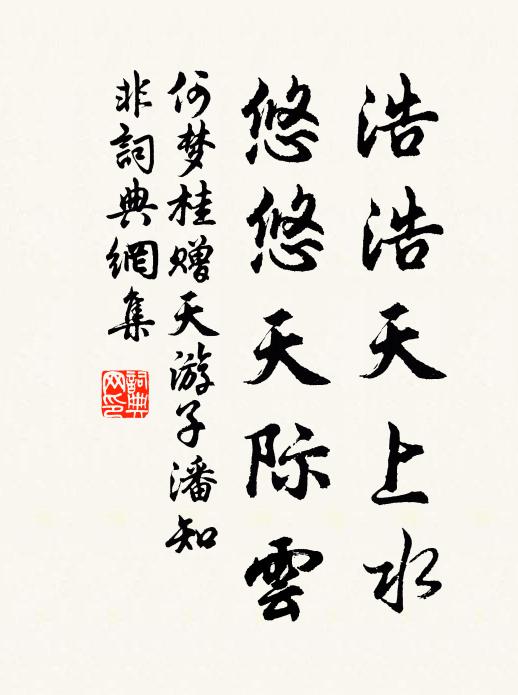 浩浩天上水
悠悠天际雲
何梦桂赠天游子潘知
非詞典網集
詞典网印